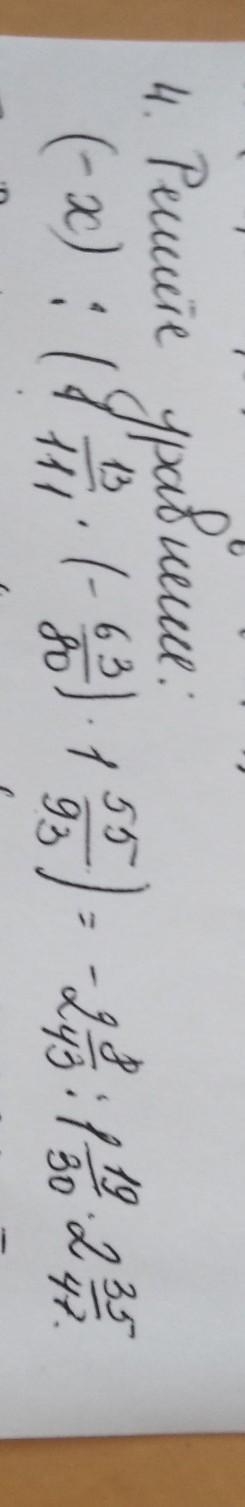 4. Решите уравнение:
(-x) : (1 13/111 · (- 63/80) · 1 55/93) = -2 8/43 : 1 19/30 · 2 35/47.